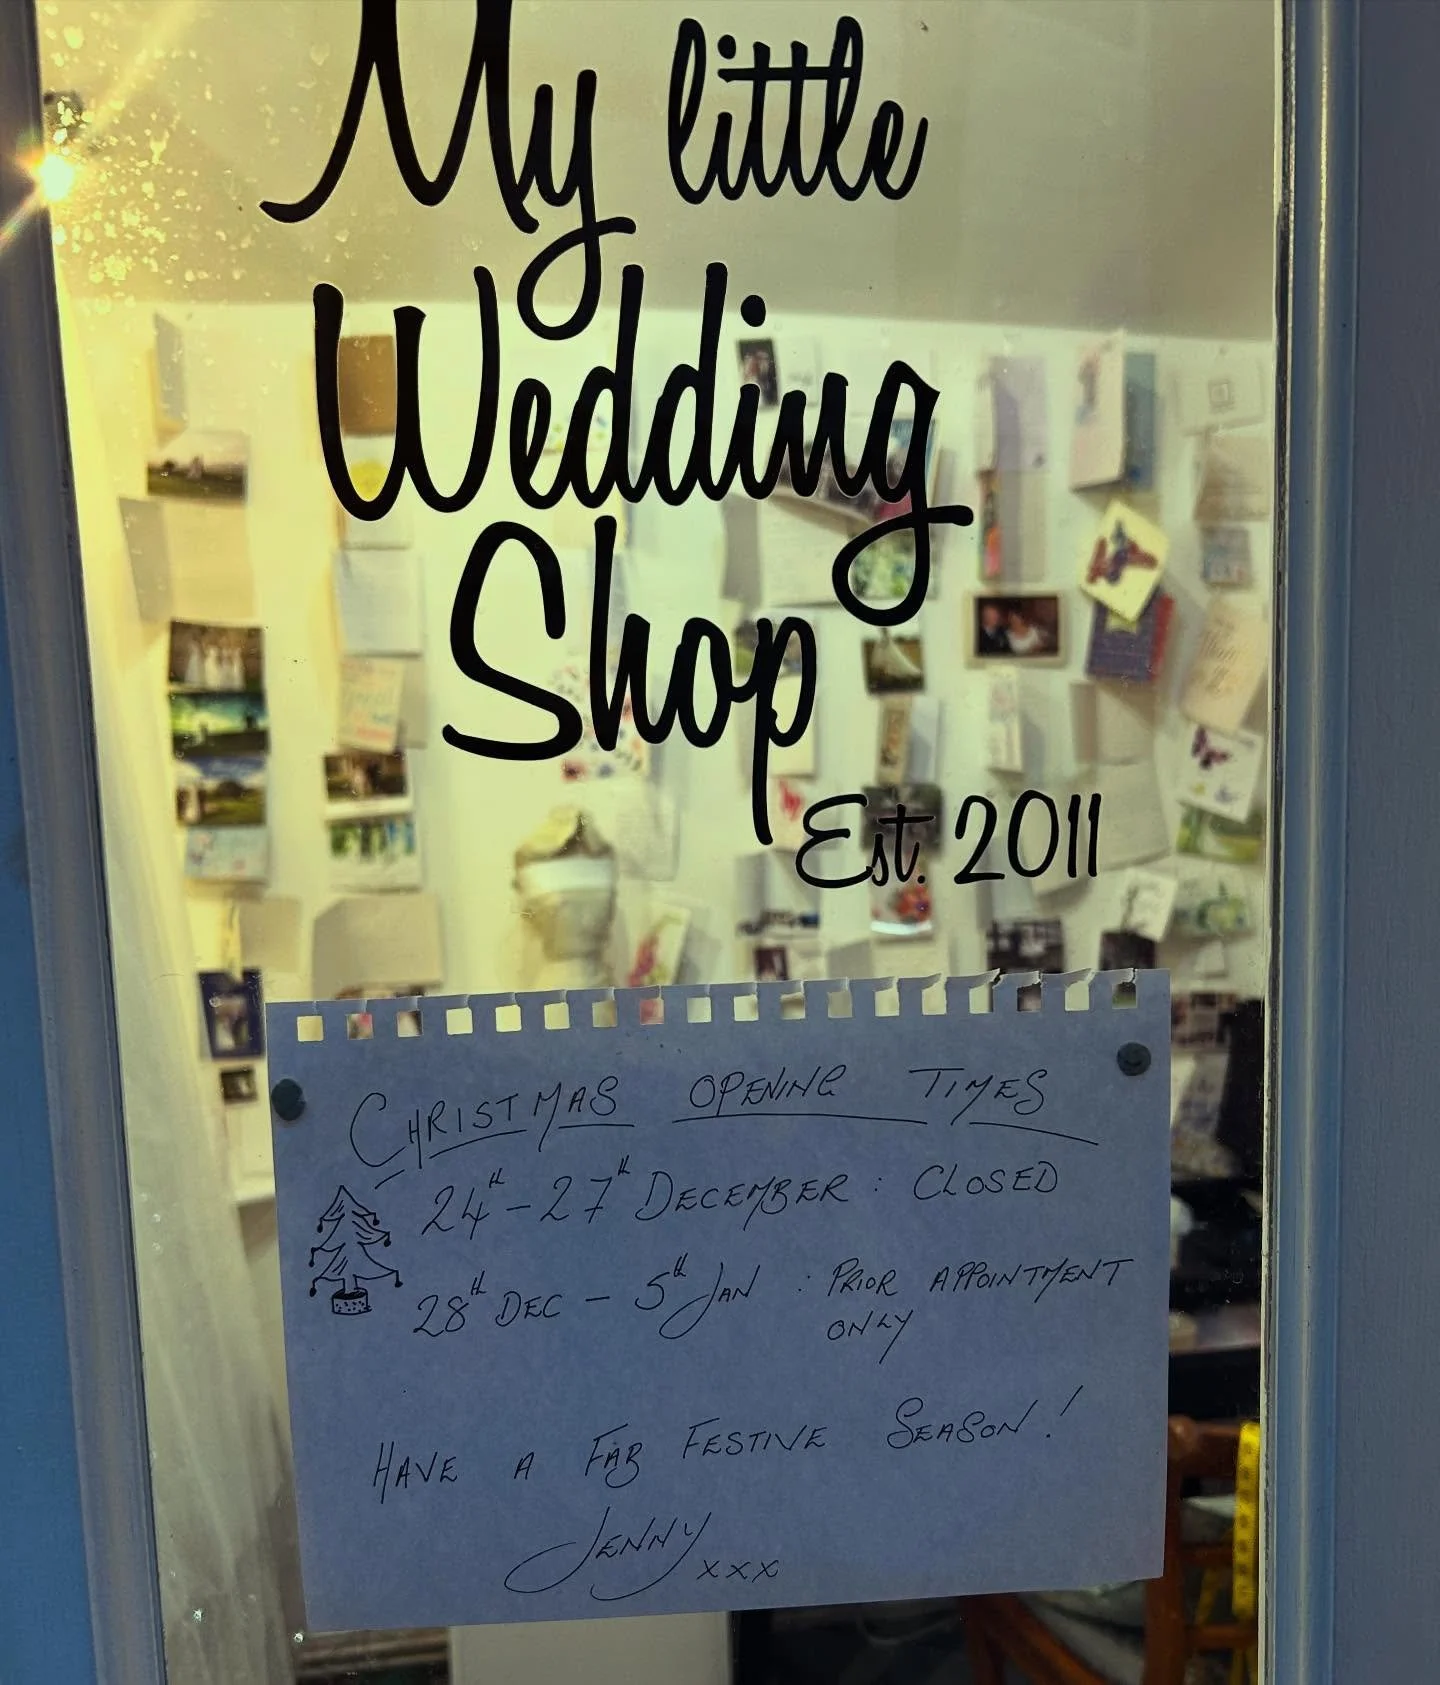 My little
Wedding
Shop
Est. 2011
CHRISTMAS OPENING TIMES
24th - 27th DECEMBER : CLOSED
28th DEC - 5th JAN : PRIOR APPOINTMENT
ONLY
HAVE A FAB FESTIVE SEASON!
JENNY xxx